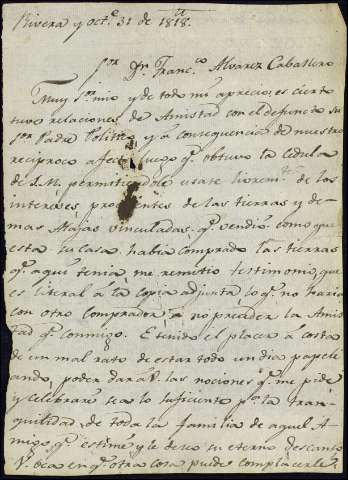 Rivera y oct.e 31 de 1818.
S.or Dn. Franc.co Alvarez Caballero
Muy S.or mio y de todo mi aprecio, es cierto
tuvo relaciones de Amistad con el defuncto su
S.or Padre Politico y a consequencia de nuestro
reciproco afecto luego q.e obtuvo la cedula
de S.M. permitiendole usase librem.te de los
intereses procedentes de las tierras y de-
mas Alajas vinculadas q.e vendio, como que
esta su casa habia comprado las tierras
q.e aqui tenia me remitio testimonio, que
es literal á la copia adjunta lo q.e no haria
con otro comprador á no preceder la Amis-
tad q.e conmigo. E tenido el placer á costa
de un mal rato de estar todo un dia papele-
ando, poder dar á V. las nociones q.e me pide
y celebraré sea lo suficiente p.a la tran-
quilidad de toda la familia de aquel A-
migo q.e estimé y le deseo su eterno descanso
V. vea en q.e otra cosa puede complacerle